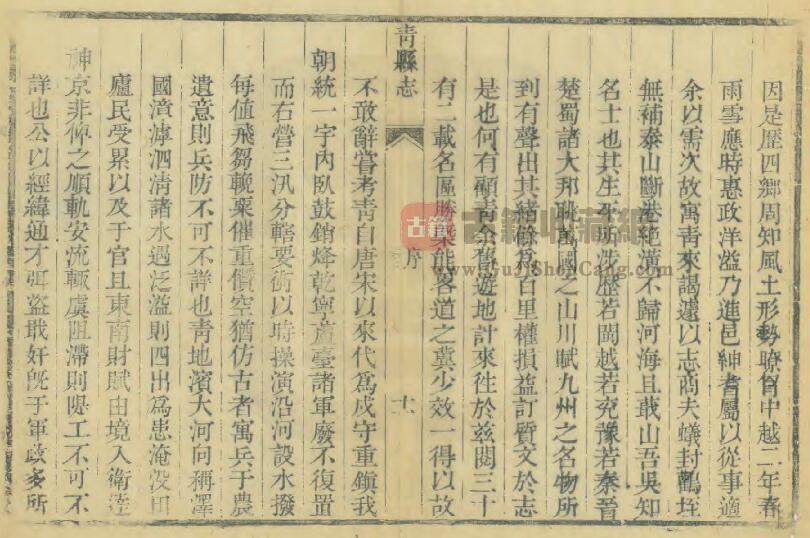 因是歷四鄉周知風土形勢瞭胷中越二年春
雨雪應時惠政洋溢乃進邑紳耆屬以從事適
余以需次故寓青來謁遽以志商夫蟻封鸛垤
無補泰山斷港絕潢不歸河海且蕺山吾吳知
名士也其生平所涉歷若閩越若兖豫若秦晉
楚蜀諸大邦眺萬國之山川賦九州之名物所
到有聲出其緒餘為百里權損益訂質文於志
是也何有顧青余舊遊地計來往於兹閱三十
有二載名區勝槩能畧道之冀少效一得以故
青縣志
序
十
不敢辭嘗考青自唐宋以來代為戍守重鎮我
朝統一宇內臥鼓銷烽乾寧蘆臺諸軍廢不復置
而右營三汛分轄要衝以時操演沿河設水撥
每值飛芻輓粟催重儹空猶仿古者寓兵于農
遺意則兵防不可不詳也青地濱大河向稱澤
國漳滹泗清諸水遇泛溢則四出為患淹沒田
廬民受累以及于官且東南財賦由境入衛達
神京非俾之順軌安流輙虞阻滯則隄工不可不
詳也公以經緯通才弭盜戢奸旣于軍政多所
www.YuJiShopCang.com
古籍
古籍收藏網